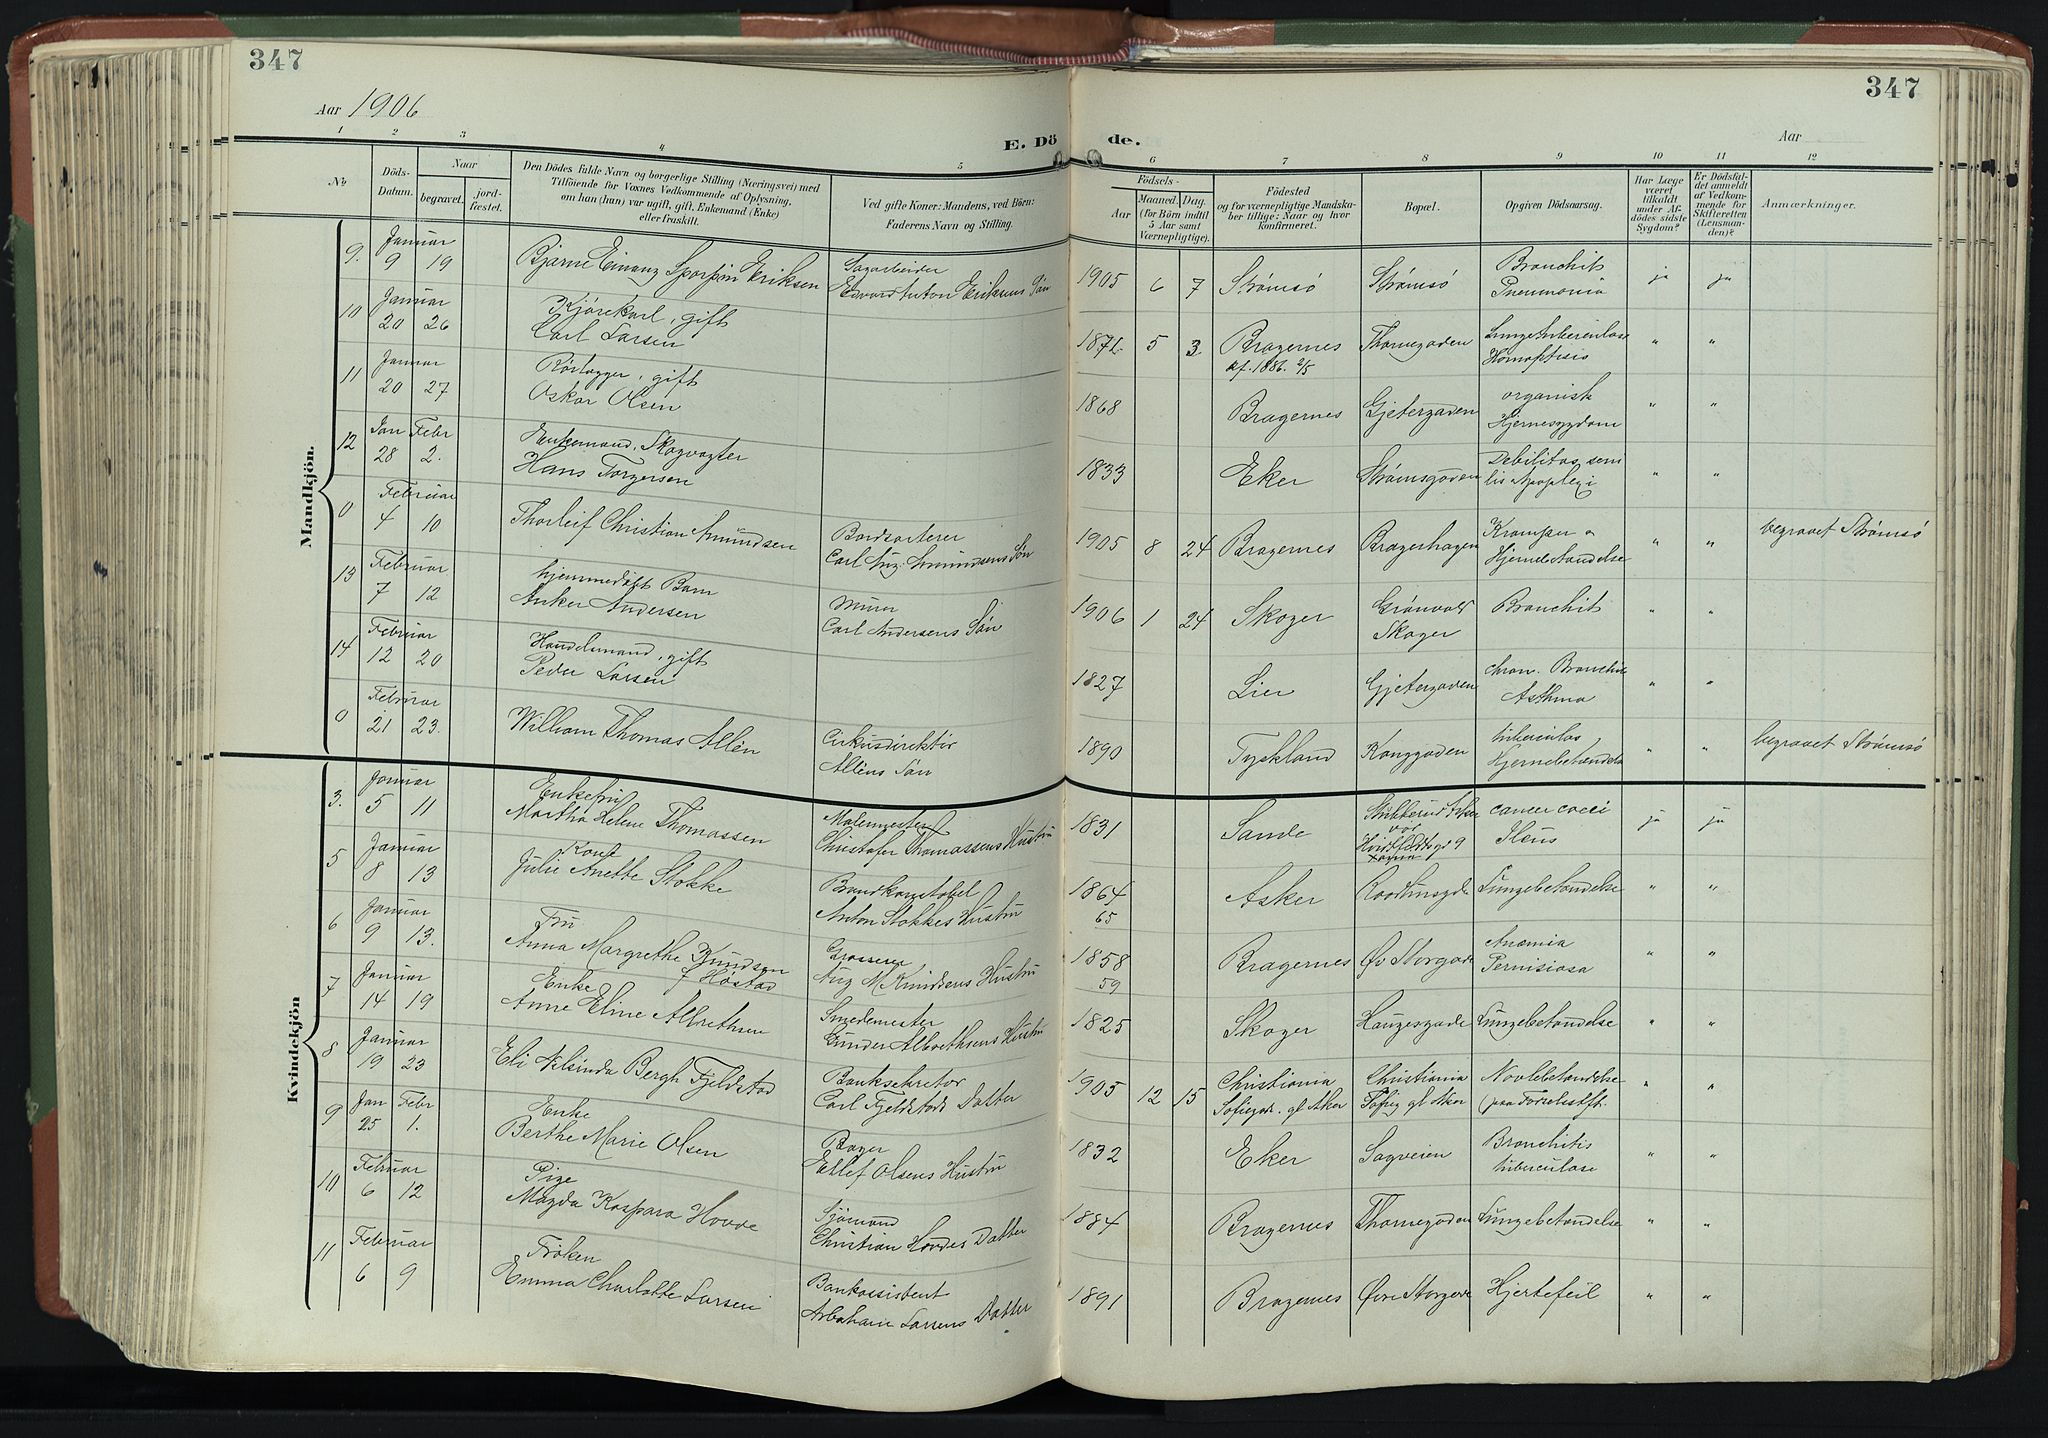 347
347
Aar 1906
Aar
E. Dö de.
1 2 3 4 5 6 7 8 9 10 11 12
No
Döds-
Datum.
Naar
begravet.
jord-
fæstet.
Den Dödes fulde Navn og borgerlige Stilling (Næringsvei) med
Tilföiende for Voxnes Vedkommende af Oplysning,
om han (hun) var ugift, gift, Enkemand (Enke)
eller fraskilt.
Ved gifte Koner: Mandens, ved Börn:
Faderens Navn og Stilling.
Födsels-
Aar
Maaned. Dag.
(for Börn indtil
5 Aar samt
Værnepligtige).
Födested
og for værnepligtige Mandska-
ber tillige: Naar og hvor
konfirmeret.
Bopæl.
Opgiven Dödsaarsag.
Har Læge
været
tilkaldt
under Af-
dödes sidste
Sygdom?
Er Dödsfal-
det anmeldt
af Vedkom-
mende for
Skifteretten
(Lensman-
den)?
Anmærkninger.
Mandkjön.
Januar
9. 9 19 Bjarne Einanz Eriksen
Sagarbeider
Edvard Anton Eriksens Søn
1905 6 7 Strømsø Strømsø Bronchit
Pneumonia ja ja
Januar
10 20 26 Kjørekarl, gift
Carl Larsen
1872 5 3. Bragernes Thornegaden Lungetuberculose
Hæmoptisis " "
kf. 1886. 2/5
Januar
11 20 27 Rørlægger, gift
Oskar Olsen
1868 Bragernes Gjetergaden organisk
Hjernesygdom " "
Jan Febr
12 28 2. Enkemand, Skogvogter
Hans Torgersen
1833 Eker Strømsgaden Debilitas seni
lis Apoplexi " "
Februar
0 4 10 Thorleif Christian Amundsen
Bordsorterer
Carl Aug. Amundsens Søn
1905 8 24 Bragernes Bragerhagen Kramper o
Hjernebetændelse " " begravet Strømsø
Februar
13 7 12 hjemmedøbt Barn
Anker Andersen
Murer
Carl Andersens Søn
1906 1 24 Skoger Grønvold
Skoger Bronchit " "
Februar
14 12 20 Handelsmand, gift
Peder Larsen
1827 Lier Gjetergaden chron. Bronchit
Asthma " "
Februar
0 21 23. William Thomas Allén
Cirkusdirektør
Alléns Søn
1890 Tyskland Konggaden tuberculøs
Hjernebetændelse " " begravet Strømsø
Kvindekjön
Januar
3. 5 11 Enkefru
Martha Helene Thomassen
Malermester
Christofer Thomassens Hustru
1831 Sande cancer coeci
Ileus ja ja
Januar
5 8 13 Kone
Julie Anette Stokke
Brandkonstabel
Anton Stokkes Hustru
1864
65 Asker Lungebetændelse " "
Januar
6 9 13. Fru
Anna Margrethe Knudsen
f Høstad
Grosserer
Aug M Knudsens Hustru
1858
59 Bragernes Øv Storgade Anæmia
Pernisiosa " "
Januar
7 14 19 Enke
Anne Eline Albrethsen
Smedemester
Gunder Albrethsens Hustru
1825 Skoger Haugesgade Lungebetændelse " "
Januar
8 19 23 Eli Nilsinda Bergh Fjeldstad
Banksekretær
Carl Fjeldstads Datter
1905 12 15 Christiania
Sofiegd. gl Aker Christiania
Sofieg gl Aker Navlebetændelse " "
Jan Febr
9 25 1. Enke
Berthe Marie Olsen
Bager
Detlef Olsens Hustru
1832 Eker Sagveien Bronchitis
tuberculose " "
Februar
10 6 12 Pige
Magda Kaspara Hovde
Sjømand
Christian Hovdes Datter
1884 Bragernes Thornegaden Lungebetændelse " "
Februar
11 6 9 Frøken
Emma Charlotte Larsen
Bankassistent
Abraham Larsens Datter
1891 Bragernes Øvre Storgade Hjertefeil " "